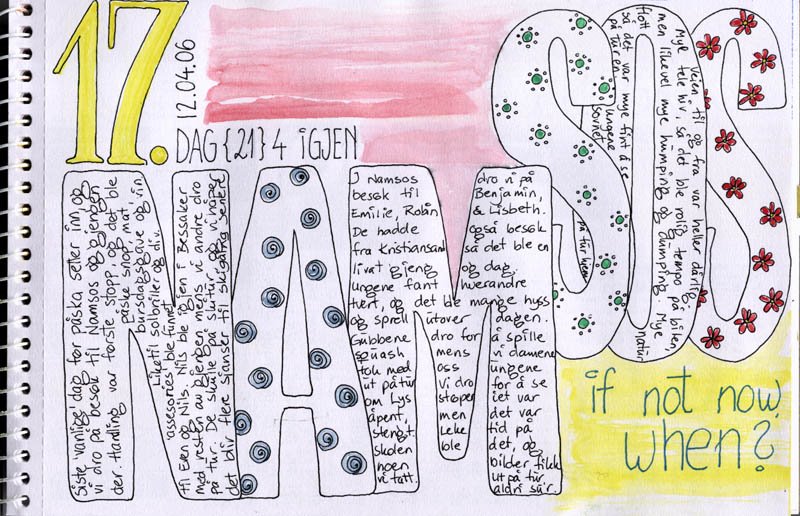 17.
12.04.06
DAG {21} 4 IGJEN
NAMSOS
Siste 'vanlige' dag før påska setter inn, og
vi dro på besøk til Namsos og gjengen
der. Handling var første stopp og det ble
påske snop, mat,
bursdagsgave og vin
Like til solbriller og div.
assesories ble funnet
til Even og Nils. Nils ble igjen i Bessaker
med resten av gjengen mens vi andre dro
på tur. De skulle på skitur og vi håper
det blir flere sjanser til skigåing senere!
I Namsos dro vi på
besøk til Benjamin,
Emilie, Robin & Lisbeth.
De hadde også besøk
fra Kristiansand så det ble en
livat gjeng og dag.
ungene fant hverandre
fort, og det ble mange hyss
og sprell utover dagen.
Gubbene dro for å spille
squash mens vi damene
tok med oss ungene
ut på tur Vi dro for å se
om Lys støperiet var
åpent, men det var
stengt. Leke tid på
skolen ble det, og
noen bilder fikk
vi tatt. ut på tur
aldri sur.
Veien til og fra var heller dårlig
Mye tele hiv, så det ble rolig tempo på bilen,
men likevel mye humping og dumping. Mye
flott natur
så det var mye fint å se
på turen.
ungene
sovnet
på tur hjem
if not now,
when?